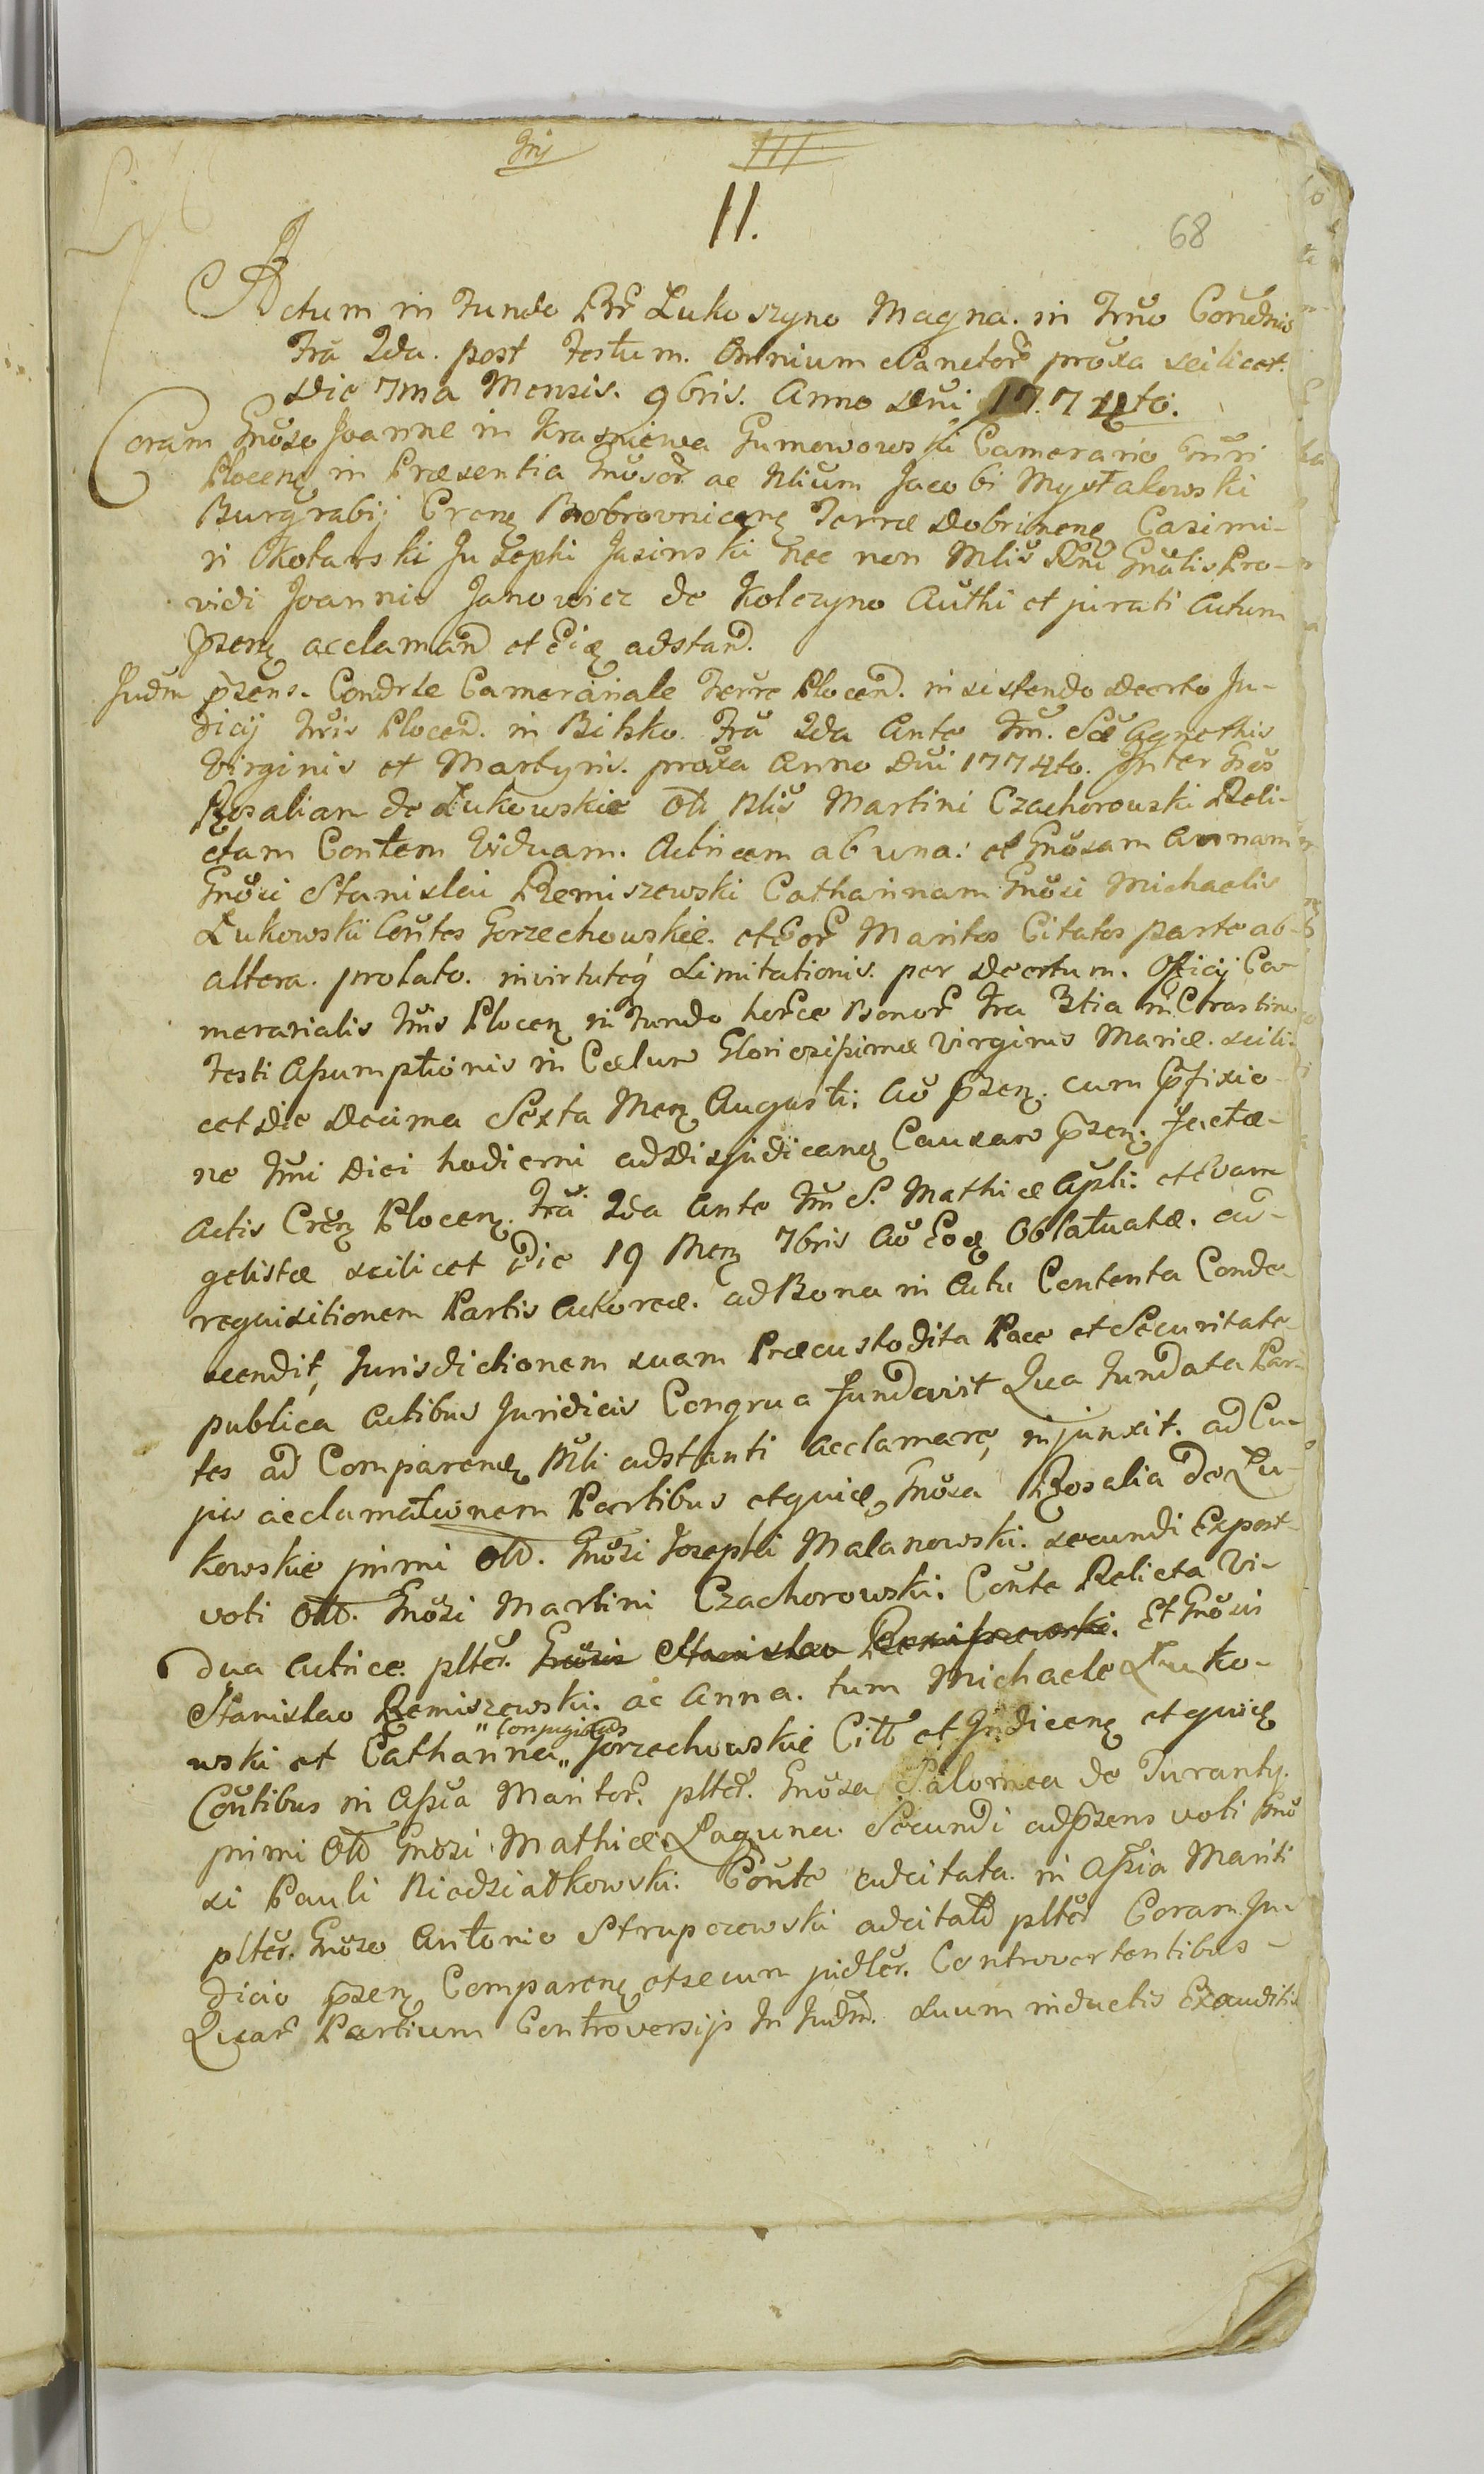 III
II.
68
Actum in Fundo Bonr Łukoszyno Magna. in Trño Condñis
Fría 2da. post Festum. Omnium Sanctor̃ proxa scilicet.
Die 7ma Mensis. 9bris. Anno Dñi 1774to.
Coram Gnõso Joanne in Krasniewa Gumowowski Camerario Trũri
Plocenʒ in Præsentia Gnõsor̃ ac Nlium Jacobi Mystakowski
Burgrabij Crenʒ Bobrovnicenʒ Terræ Dobrinenʒ Casimi-
ri Okolarski Josephi Jasinski nec non Mlis Rni Gnãlis Pro-
vidi Joannis Janowicz de Kolczyno Authi et jurati Actum
p̃senʒ acclamañ et Eiʒ adstañ.
Judm p̃sens. Condrle Camerariale Terrę Plocen̄. insistendo Decrto Ju-
dicij Trris Plocen̄. in Bilsko. Fría 2da Ante Fm̃. Sæ Agnethis
Virginis et Martyris. proxa Anno Dñi 1774to. Inter Gsos
Rosaliam de Łukowskie Oli Nlis Martini Czachorowski Reli-
ctam Contem Viduam. Actricem ab una: et Gnõsam Annam
Gnõsi Stanislai Remiszewski Catharinam Gnõsi Michaelis
Łukowski Côntes Gorzechowskie. et Eor̃ Maritos Citatos parte ab
altera. prolato. invirtuteq́ Limitationis. per Decrtum. Officij Ca-
merarialis Trris Plocenʒ in Fundo hor̃ce Bonor̃ Fria 3tia in Crastino
Festi Aßumptionis in Cælum Gloriosißimæ Virginis Mariæ. scili-
cet Die Decima Sexta Menʒ Augusti; Aõ p̃senʒ. cum p̃fixio-
ne Trmi Diei hodierni ad Disjudicanʒ Causam p̃senʒ. Factæ-
Actis Crẽnʒ Plocenʒ. Fría 2da Ante Fm̃ S. Mathiæ Apli: et Evan
gelistæ scilicet Die 19 Menʒ 7bris Aõ Eoʒ Oblatuatæ. ad-
requisitionem Partis Actoreæ. ad Bona in Actu Contenta Conde-
scendit, Jurisdictionem suam Præcustodita Pace et Securitate-
publica Actibus Juridicis Congrua fundavit Qua Fundata Par-
tes ad Comparenʒ Mli adstanti acclamare, injunxit. ad Cu-
jus acclamationem Partibus utquiæ, Gnõsa Rosalia de Łu-
kowskie primi Oli. Gnõsi Josephi Malanowski. secundi Expost-
voti Oli. Gnõsi Martini Czachorowski. Cônte Relicta Vi-
dua Actrice. pltẽr. Gnõsis Stanislao Remißewski. Et Gnõsis
Stanislao Remiszewski. ac Anna. tum Michaele Łuko-
wski et Catharina „Conjugibus„ Gorzechowskie Citt̃ et Judicenʒ etquiʒ
Côntibus in Aßia Maritor̃. pltẽr. Gnõsa Salomea de Turanty.
primi Oli Gnõsi Mathiæ Laguna. Secundi ad p̃sens voti Gnõ
si Pauli Niedziałkowski. Cônte adcitata. in Aßia Mariti
pltẽr. Gnõso Antonio Strupczewski adcitato pltẽr Coram Ju-
dicio p̃senʒ Comparenʒ et secum judlẽr. Controvertentibus-
Quar̃ Partium Controversijs In Judm̃. suum inductis Exauditis